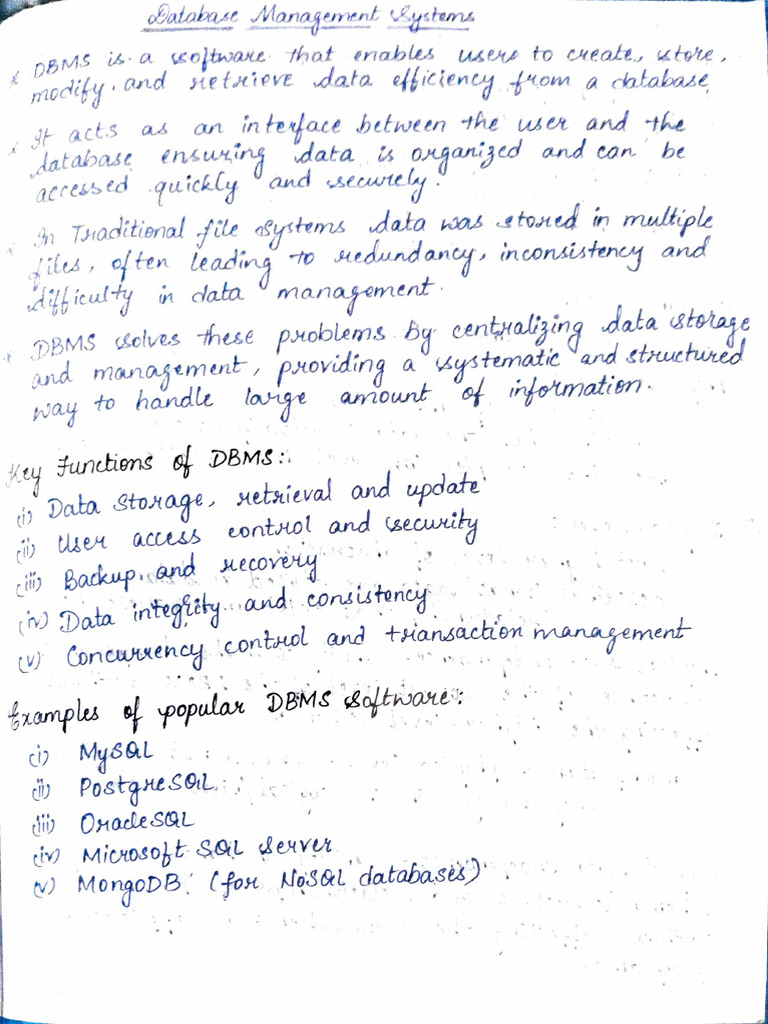 Database Management Systems
* DBMS is a software that enables users to create, store,
modify, and retrieve data efficiency from a database
* It acts as an interface between the user and the
database ensuring data is organized and can be
accessed quickly and securely.
* In Traditional file systems data was stored in multiple
files, often leading to redundancy, inconsistency and
difficulty in data management.
* DBMS solves these problems By centralizing data storage
and management, providing a systematic and structured
way to handle large amount of information.
Key Functions of DBMS:
(i) Data Storage, retrieval and update
(ii) User access control and security
(iii) Backup and recovery
(iv) Data integrity and consistency
(v) Concurrency control and transaction management
Examples of popular DBMS Software:
(i) MySQL
(ii) PostgreSQL
(iii) OracleSQL
(iv) Microsoft SQL Server
(v) MongoDB (for NoSQL databases)